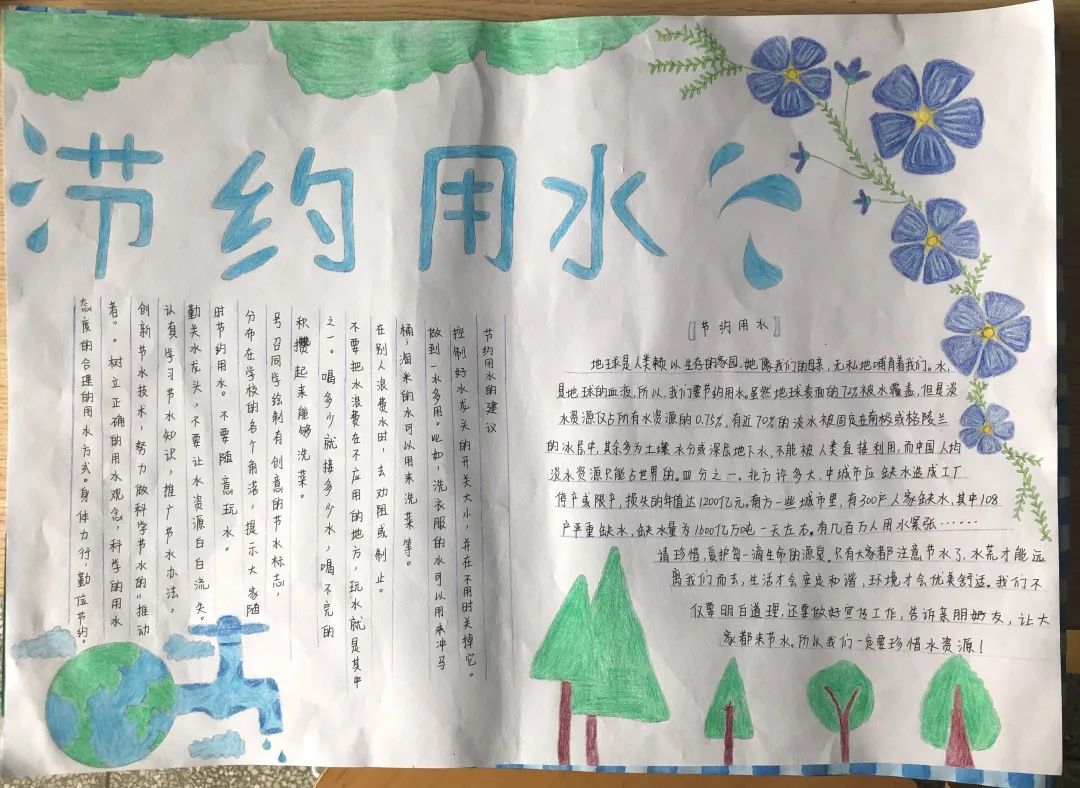 节约用水
节约用水的建议
控制好水龙头的开关大小,并在不用时关掉它。
做到一水多用。比如,洗衣服的水可以用来冲马
桶,淘米的水可以用来洗菜等。
在别人浪费水时,去劝阻或制止。
不要把水浪费在不应用的地方,玩水就是其中
之一。喝多少就接多少水,喝不完的
积攒起来能够洗菜。
号召同学绘制有创意的节水标志,
分布在学校的各个角落,提示大家随
时节约用水。不要随意玩水。
勤关水龙头,不要让水资源白白流失。
认真学习节水知识,推广节水办法,
创新节水技术,努力做科学节水的"推动
者"。树立正确的用水观念,科学的用水
态度的合理的用水方式。身体力行,勤俭节约。
【节约用水】
地球是人类赖以生存的家园,她像我们的母亲,无私地哺育着我们。水,
是地球的血液,所以,我们要节约用水。虽然地球表面的72%被水覆盖,但是淡
水资源仅占所有水资源的0.75%,有近70%的淡水被固定在南极或格陵兰
的冰层中,其余多为土壤水分或深层地下水,不能被人类直接利用,而中国人均
淡水资源只能占世界的。四分之一,北方许多大,中城市应缺水造成工厂
停产或限产,损失的年值达1200亿元,南方一些城市里,有300户人家缺水,其中108
户严重缺水,缺水量为1600亿万吨一天左右。有几百万人用水紧张……
请珍惜,爱护每一滴生命的源泉。只有大家都注意节水了,水荒才能远
离我们而去,生活才会安定和谐,环境才会优美舒适。我们不
仅要明白道理,还要做好宣传工作,告诉亲朋好友,让大
家都来节水。所以我们一定要珍惜水资源!